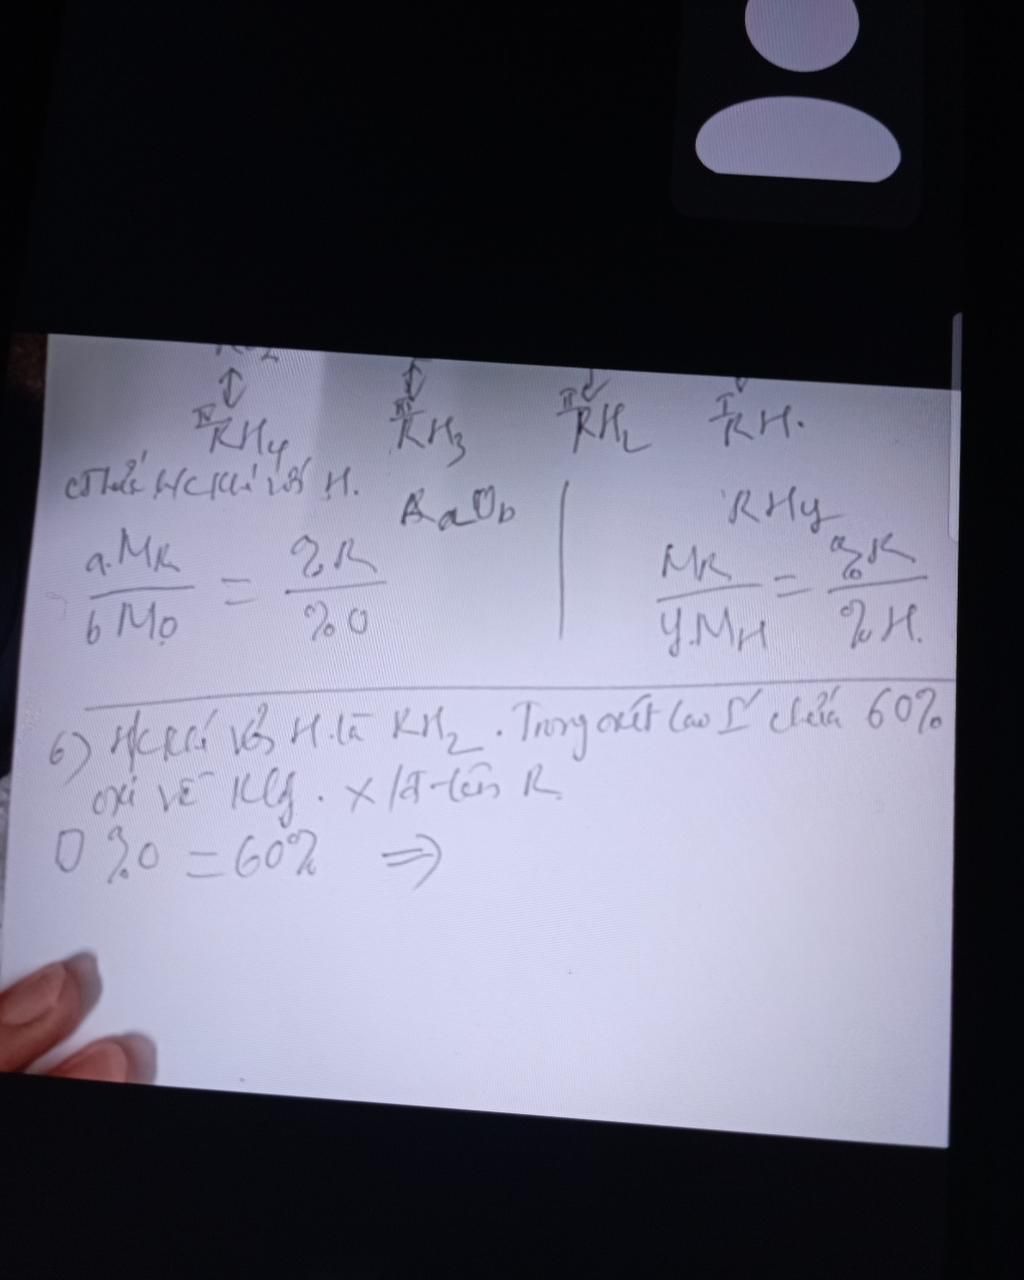 IV RH4 III RH3 II RH2 I RH.
CThức h/c khí với H.
RaOb RHy
a.MR / b MO = %R / %O MR / y.MH = %R / %H.
6) H/c khí với H là RH2. Trong oxit cao I chứa 60%
oxi về klg. x/đ tên R.
%O = 60% ⇒